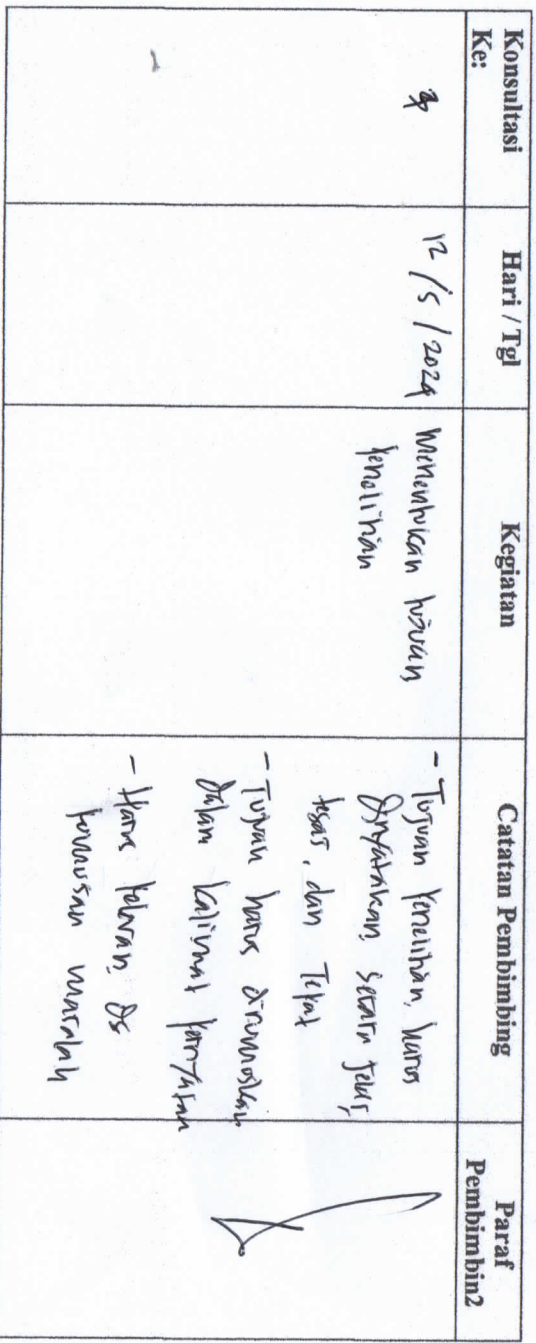 Konsultasi
Ke:
Hari / Tgl
Kegiatan
Catatan Pembimbing
Paraf
Pembimbin2
12/5/2024
Menentukan tujuan
penelitian
- Tujuan penelitian harus
dinyatakan secara jelas,
tegas, dan Tepat
- Tujuan harus dirumuskan
dalam kalimat pernyataan
- Harus relevan dg
rumusan masalah